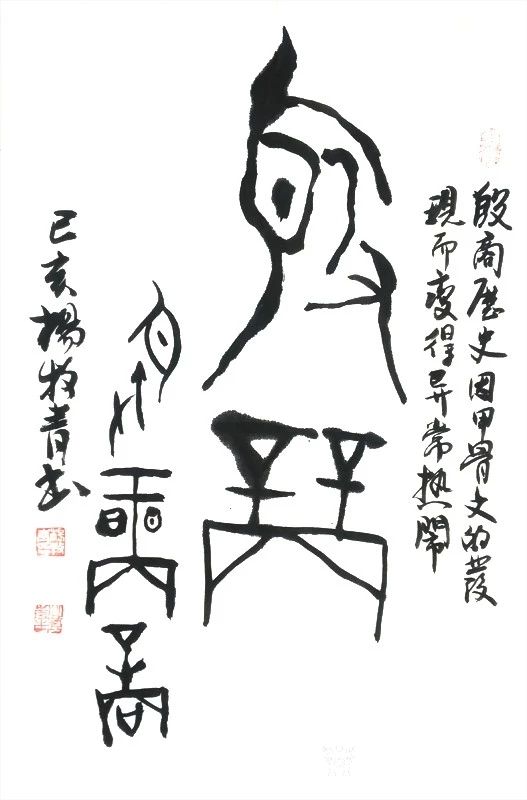 殷商歷史因甲骨文的發
現而變得异常热鬧
殷商
己亥楊牧青書